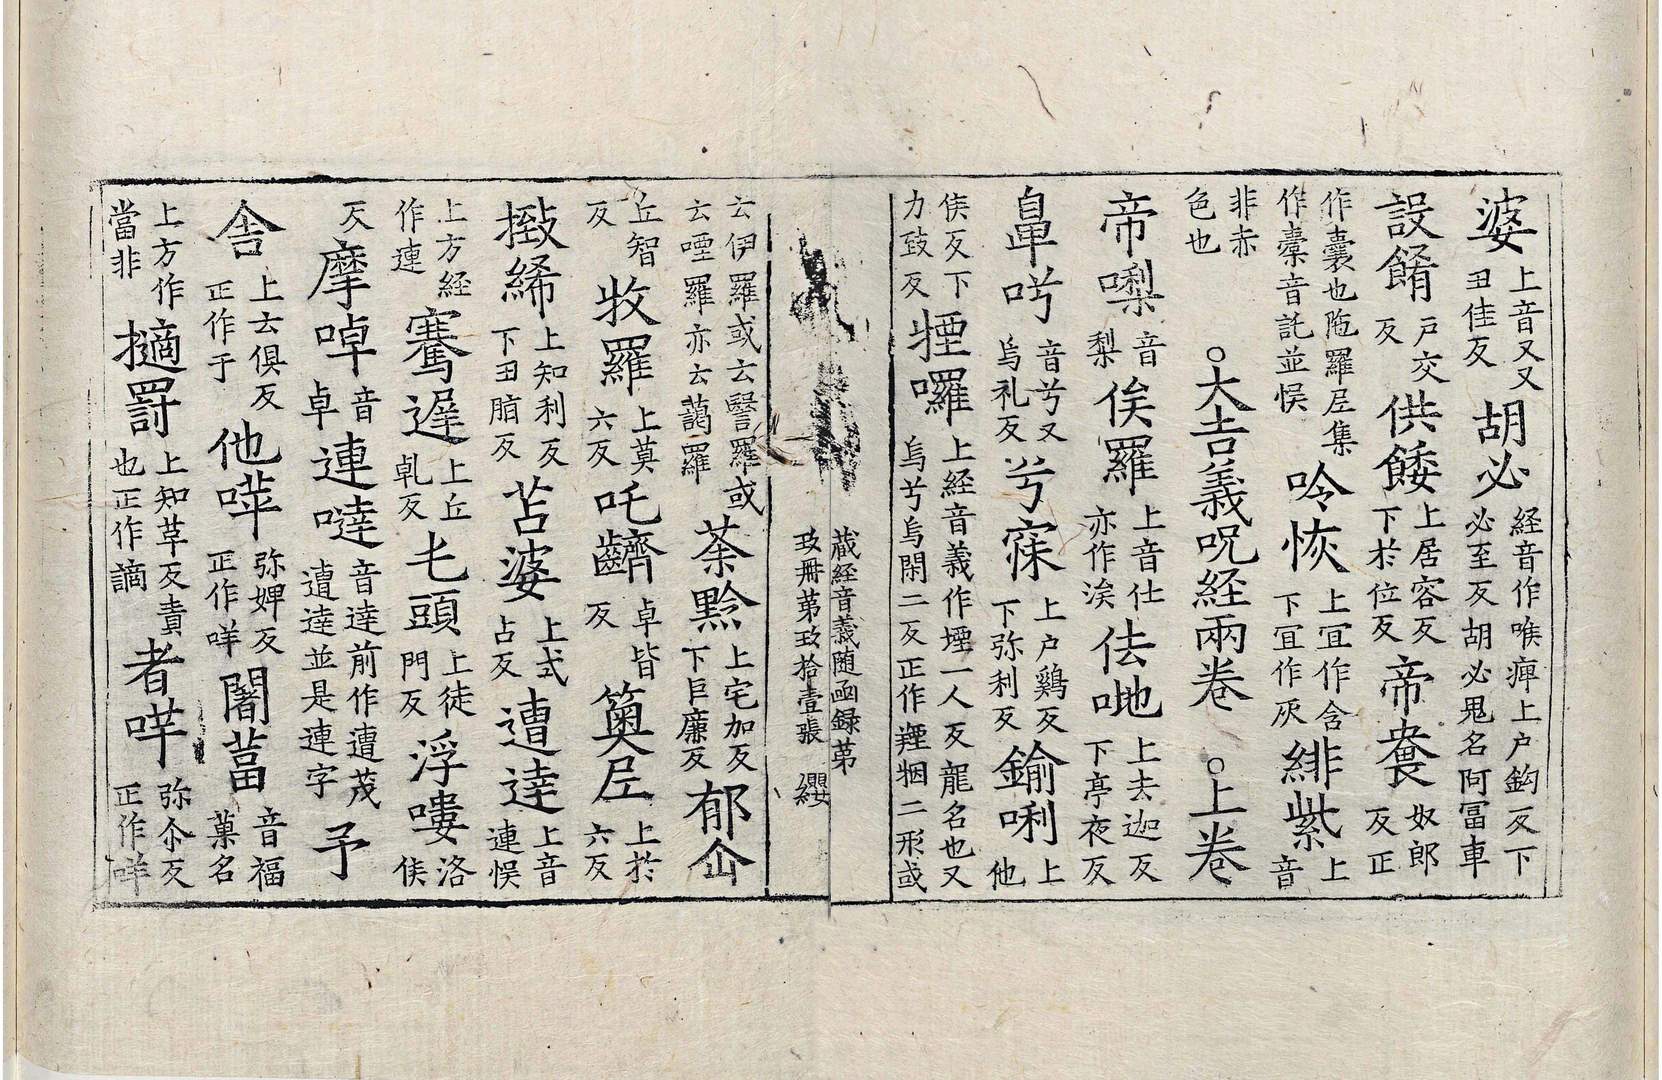 婆 上音叉又丑佳反 胡必 経音作喉痺上户鈎反下必至反胡必鬼名阿冨車
設餚 户交反 供餧 上居容反下於位反 帝㐮 奴郎反正
作囊也陁羅尼集作橐音託並悮 呤恢 上宜作含下宜作灰 緋紫 上音
非赤色也 ○大吉義呪経兩卷 ○上卷
帝㗚 音梨 俟羅 上音仕亦作涘 佉哋 上去迦反下亭夜反
鼻呺 音兮又烏礼反 兮寐 上户鷄反下弥利反 鍮唎 上他
侯反下力㢤反 㹵囉 上経音義作堙一人反龍名也又烏兮烏閑二反正作㹵㹢二形或
藏経音義随函録第
玖冊第玖拾壹張 纓
云伊羅或云翳羅或云㖶羅亦云藹羅 荼黔 上宅加反下巨廉反 郁企
丘智反 牧羅 上莫六反 吒齌 卓皆反 䈏尼 上於六反
撴絺 上知利反下丑脂反 苫婆 上式占反 遭逹 上音連悮
上方経作連 騫遟 上丘乹反 乇頭 上徒門反 浮嘍 洛侯
反 摩啅 音卓 連噠 音逹前作遭茂遭逹並是連字 予
舎 上云俱反正作于 他哶 弥婢反正作咩 闍葍 音福菓名
上方作當非 擿罸 上知革反責也正作謫 者哶 弥尒反正作咩